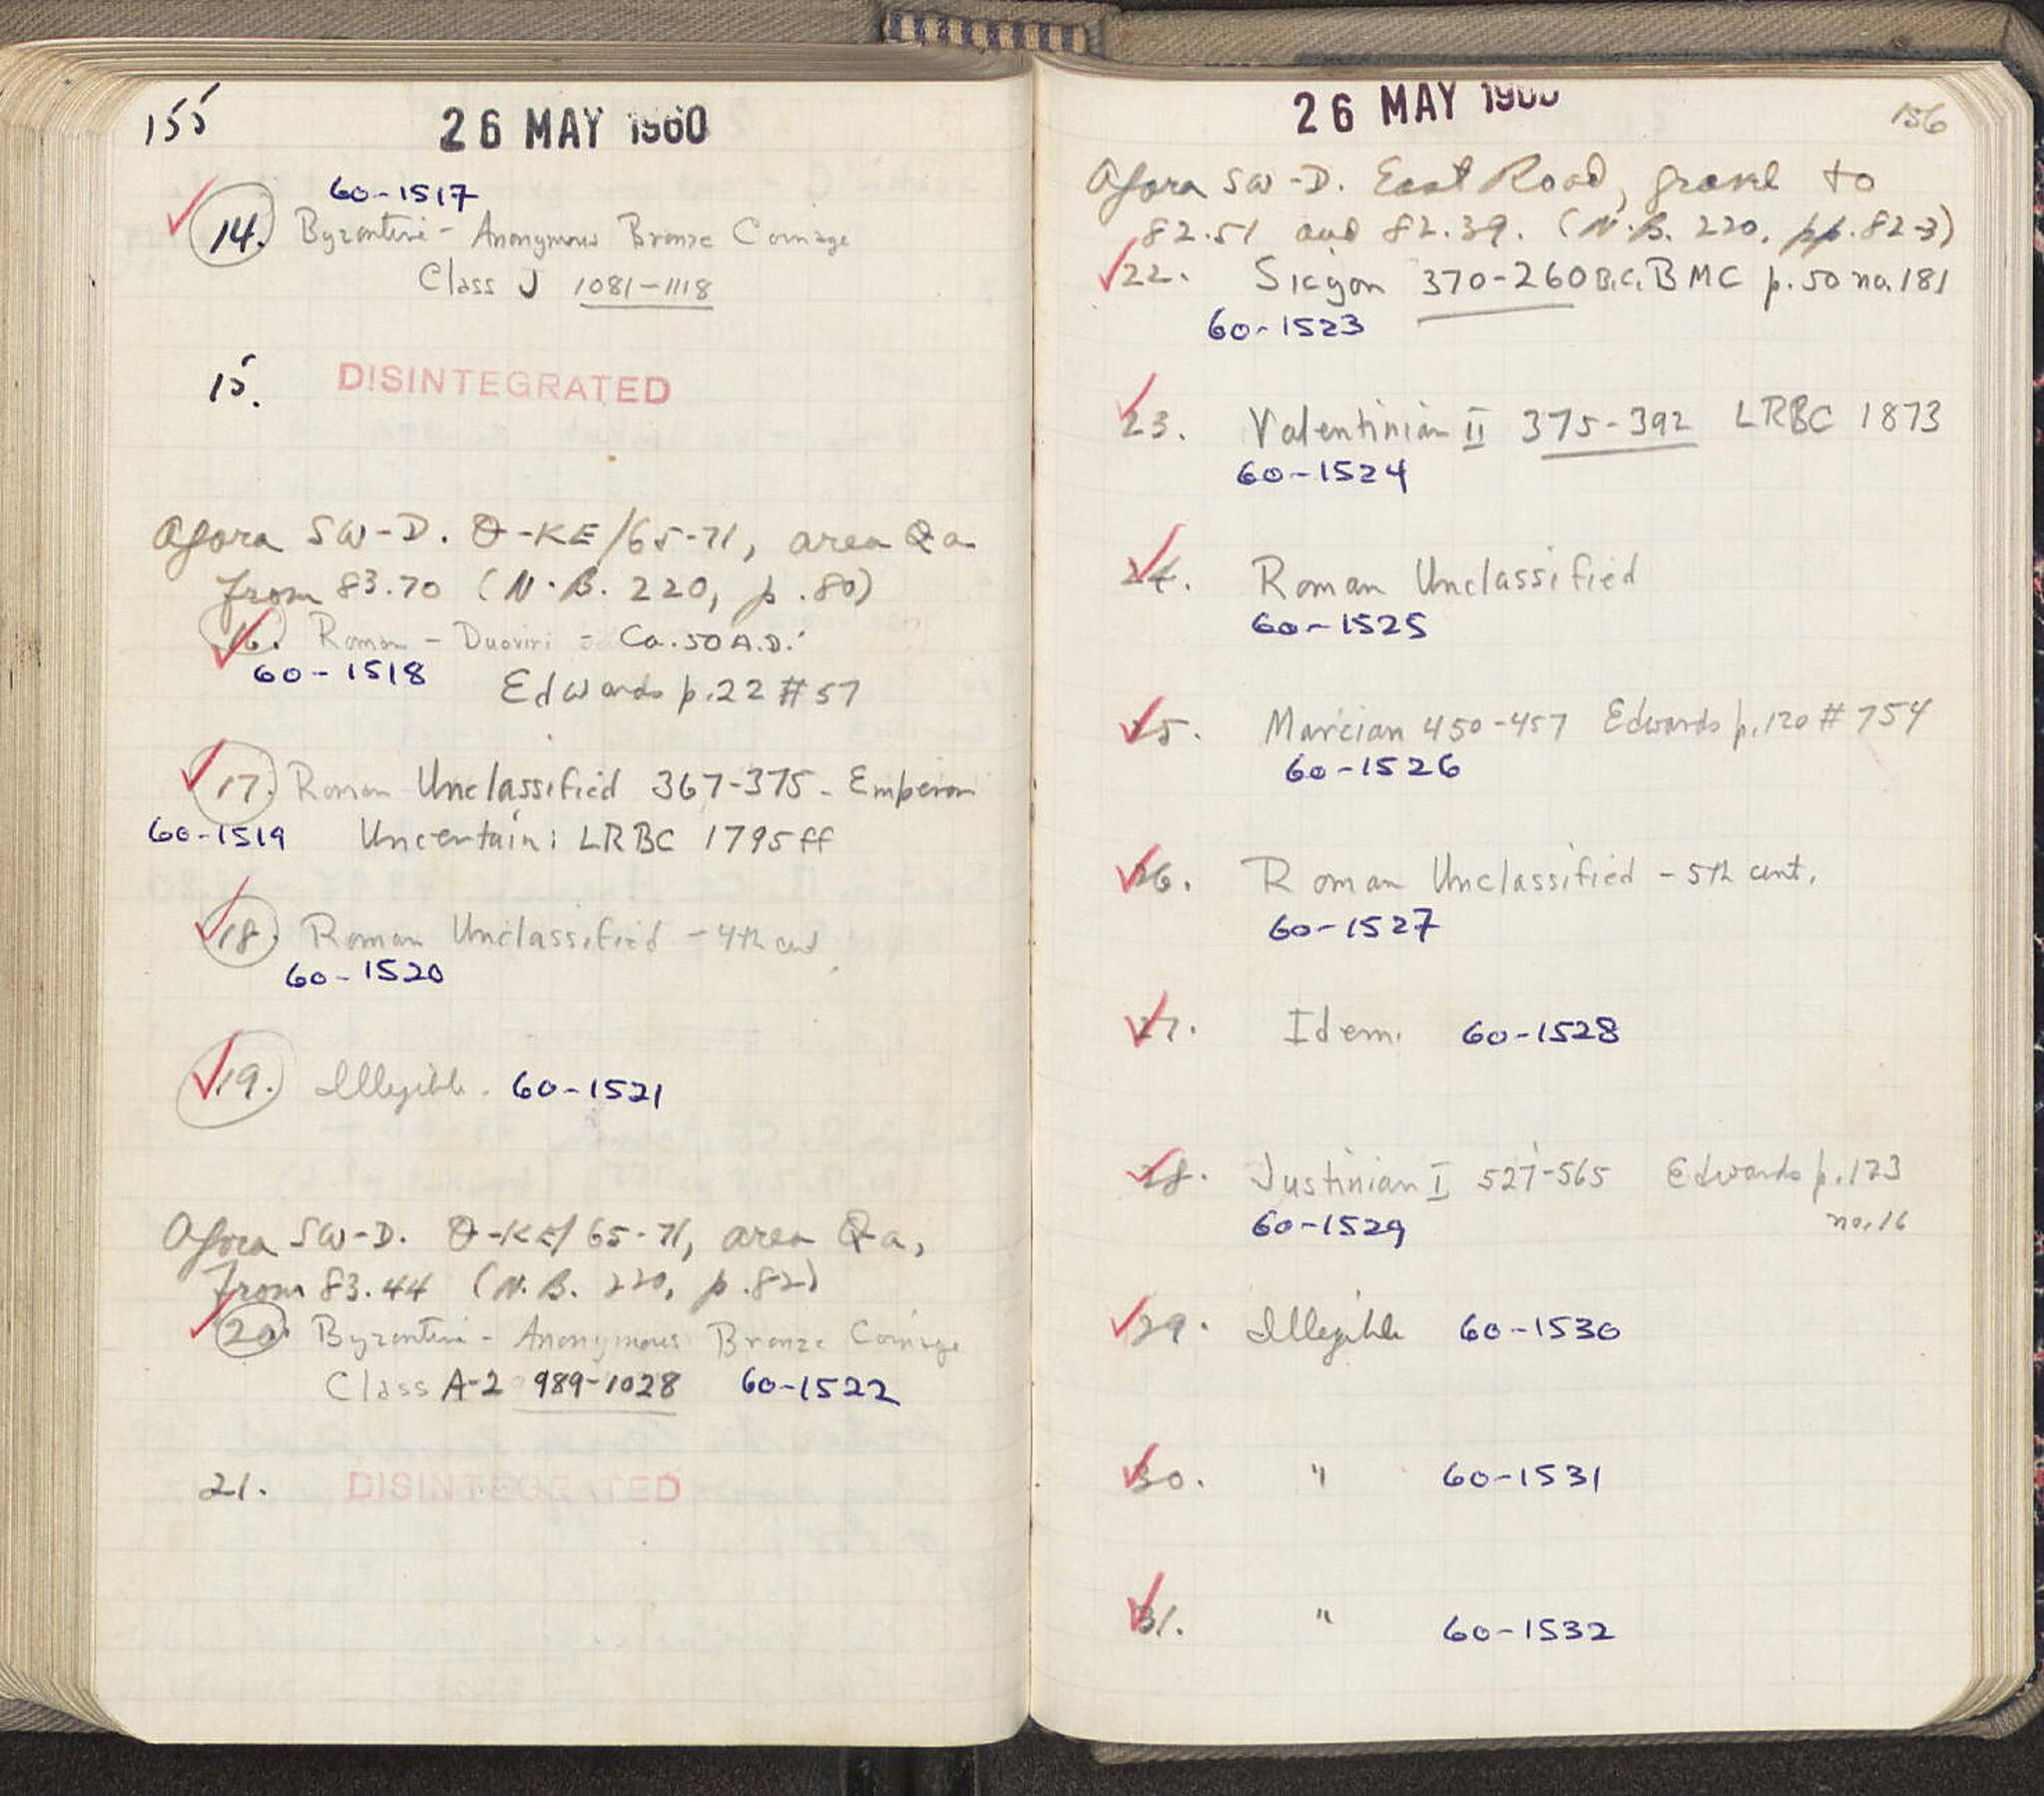 155
26 MAY 1960
60-1517
14. Byzantine - Anonymous Bronze Coinage
Class J 1081-1118
15. DISINTEGRATED
Agora SW-D. Θ-KE/65-71, area Qa
from 83.70 (N.B. 220, p.80)
16. Roman - Duoviri - Ca. 50 A.D.
60-1518 Edwards p.22 #57
17. Roman Unclassified 367-375 - Emperor
60-1519 Uncertain: LRBC 1795ff
18. Roman Unclassified - 4th cent.
60-1520
19. Illegible. 60-1521
Agora SW-D. Θ-KE/65-71, area Qa,
from 83.44 (N.B. 220, p.82)
20. Byzantine - Anonymous Bronze Coinage
Class A-2 989-1028 60-1522
21. DISINTEGRATED
26 MAY 1960
156
Agora SW-D. East Road, gravel to
82.51 and 82.39. (N.B. 220, pp. 82-3)
22. Sicyon 370-260 B.C. BMC p.50 no.181
60-1523
23. Valentinian II 375-392 LRBC 1873
60-1524
24. Roman Unclassified
60-1525
25. Marcian 450-457 Edwards p.120 #754
60-1526
26. Roman Unclassified - 5th cent.
60-1527
27. Idem. 60-1528
28. Justinian I 527-565 Edwards p.123
60-1529 no.16
29. Illegible 60-1530
30. " 60-1531
31. " 60-1532